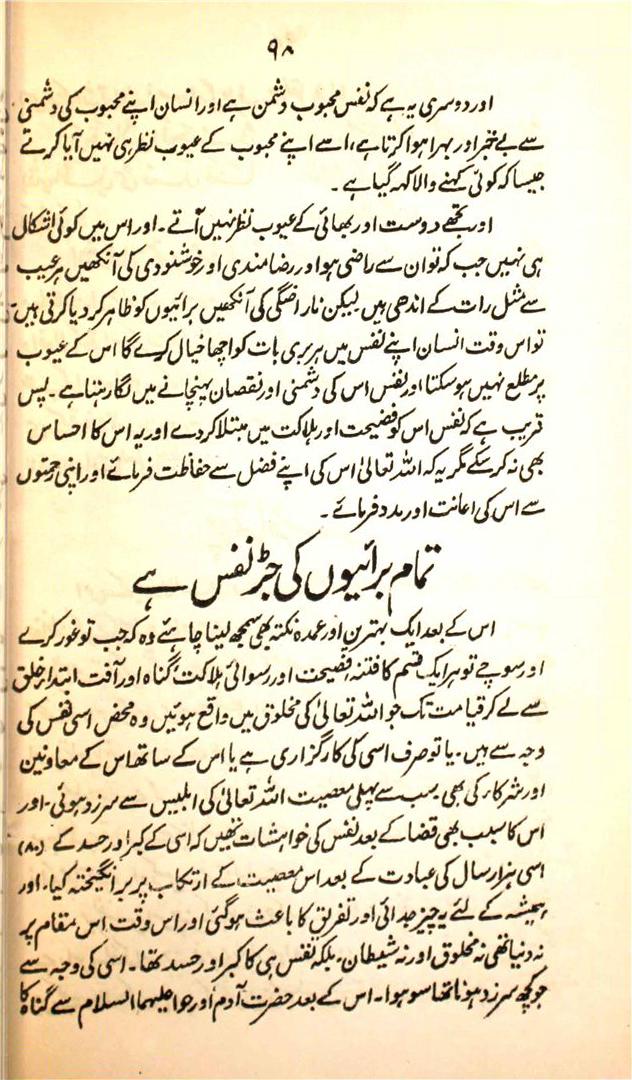 ۹۸
اور دوسری یہ ہے کہ نفس محبوب دشمن ہے اور انسان اپنے محبوب کی دشمنی
سے بے خبر اور بہرا ہوا کرتا ہے، اسے اپنے محبوب کے عیوب نظر ہی نہیں آیا کرتے
جیسا کہ کوئی کہنے والا کہہ گیا ہے ۔
اور تجھے دوست اور بھائی کے عیوب نظر نہیں آتے ۔ اور اس میں کوئی اشکال
ہی نہیں جب کہ تو ان سے راضی ہو اور رضا مندی اور خوشنودی کی آنکھیں ہر عیب
سے مثل رات کے اندھی ہیں لیکن ناراضگی کی آنکھیں برائیوں کو ظاہر کر دیا کرتی ہیں
تو اس وقت انسان اپنے نفس میں ہر بری بات کو اچھا خیال کرے گا اس کے عیوب
پر مطلع نہیں ہو سکتا اور نفس اس کی دشمنی اور نقصان پہنچانے میں لگا رہتا ہے ۔ پس
قریب ہے کہ نفس اس کو فضیحت اور ہلاکت میں مبتلا کر دے اور یہ اس کا احساس
بھی نہ کر سکے مگر یہ کہ اللہ تعالیٰ اس کی اپنے فضل سے حفاظت فرمائے اور اپنی رحمتوں
سے اس کی اعانت اور مدد فرمائے ۔
تمام برائیوں کی جڑ نفس ہے
اس کے بعد ایک بہترین اور عمدہ نکتہ بھی سمجھ لینا چاہئے وہ کہ جب تو غور کرے
اور سوچے تو ہر ایک قسم کا فتنہ فضیحت اور رسوائی ہلاکت گناہ اور آفت ابتداء خلق
سے لے کر قیامت تک جو اللہ تعالیٰ کی مخلوق میں واقع ہوئیں وہ محض اسی نفس کی
وجہ سے ہیں ۔ یا تو صرف اسی کی کارگزاری ہے یا اس کے ساتھ اس کے معاونین
اور شرکاء کی بھی ۔ سب سے پہلی معصیت اللہ تعالیٰ کی ابلیس سے سرزد ہوئی ۔ اور
اس کا سبب بھی قضا کے بعد نفس کی خواہشات تھیں کہ اسی کے کبر اور حسد کے (۸۰)
اسی ہزار سال کی عبادت کے بعد اس معصیت کے ارتکاب پر برانگیختہ کیا، اور
ہمیشہ کے لئے یہ چیز جدائی اور تفریق کا باعث ہو گئی اور اس وقت اس مقام پر
نہ دنیا تھی نہ مخلوق اور نہ شیطان ۔ بلکہ نفس ہی کا کبر اور حسد تھا ۔ اسی کی وجہ سے
جو کچھ سرزد ہونا تھا سو ہوا ۔ اس کے بعد حضرت آدم اور حوا علیہما السلام سے گناہ کا